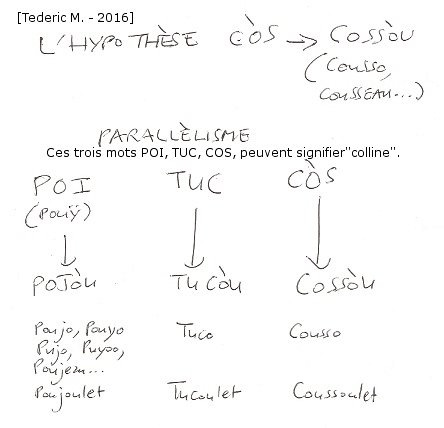 [Tederic M. - 2016]
L'HYPOTHÈSE CÒS → COSSÒU
(Cousso,
COUSSEAU...)
PARALLÈLISME
Ces trois mots POI, TUC, COS, peuvent signifier"colline".
POI TUC CÒS
(POUŸ)
POJÒU TUCÒU COSSÒU
Poujo, Pouyo Tuco Cousso
Pujo, Puyoo,
Poujeau...
Poujoulet Tucoulet Coussoulet